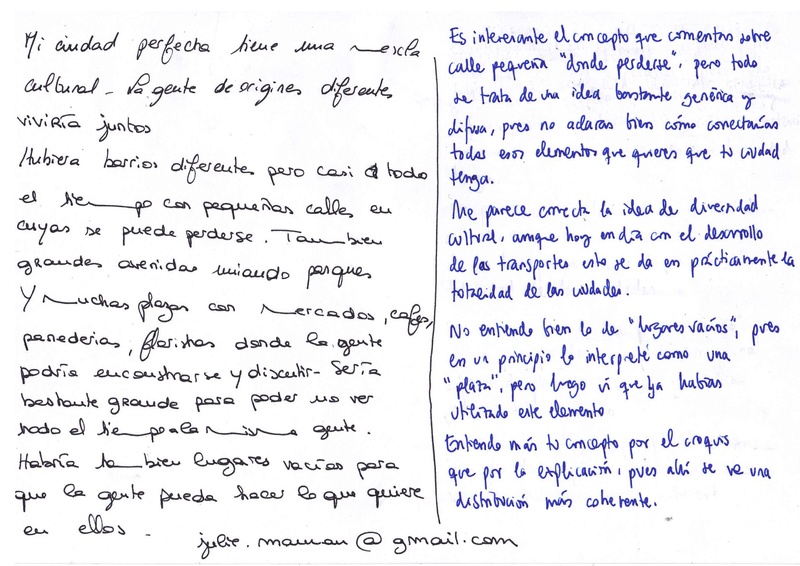 Mi ciudad perfecta tiene una mezcla
cultural - La gente de origines diferentes
viviría juntos
Hubiera barrios diferentes pero casi todo
el tiempo con pequeñas calles en
cuyas se puede perderse. Tambien
grandes avenidas uniando parques
Y muchas plazas con mercados, cafes,
panederias, floristas donde la gente
podría encounstrarse y discutir - Sería
bastante grande para poder no ver
todo el tiempo a la misma gente.
Habría tambien lugares vacías para
que la gente pueda hacer lo que quiere
en ellos -
julie.maman@gmail.com
Es interesante el concepto que comentas sobre
calle pequeña "donde perderse", pero todo
se trata de una idea bastante genérica y
difusa, pues no aclaras bien cómo conectarías
todas esos elementos que quieres que tu ciudad
tenga.
Me parece correcta la idea de diversidad
cultural, aunque hoy en día con el desarrollo
de los transportes esto se da en prácticamente la
totalidad de las ciudades.
No entiendo bien lo de "lugares vacíos", pues
en un principio lo interpreté como una
"plaza", pero luego vi que ya habías
utilizado este elemento
Entiendo más tu concepto por el croquis
que por la explicación, pues ahí se ve una
distribución más coherente.